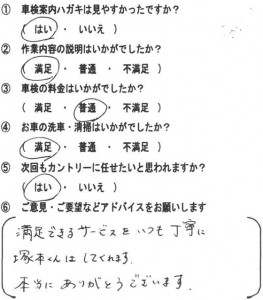 ① 車検案内ハガキは見やすかったですか?
( はい ・ いいえ )
② 作業内容の説明はいかがでしたか?
( 満足 ・ 普通 ・ 不満足 )
③ 車検の料金はいかがでしたか?
( 満足 ・ 普通 ・ 不満足 )
④ お車の洗車・清掃はいかがでしたか?
( 満足 ・ 普通 ・ 不満足 )
⑤ 次回もカントリーに任せたいと思われますか?
( はい ・ いいえ )
⑥ ご意見・ご要望などアドバイスをお願いします
満足できるサービスをいつも丁寧に
塚本くんはしてくれます。
本当にありがとうございます。